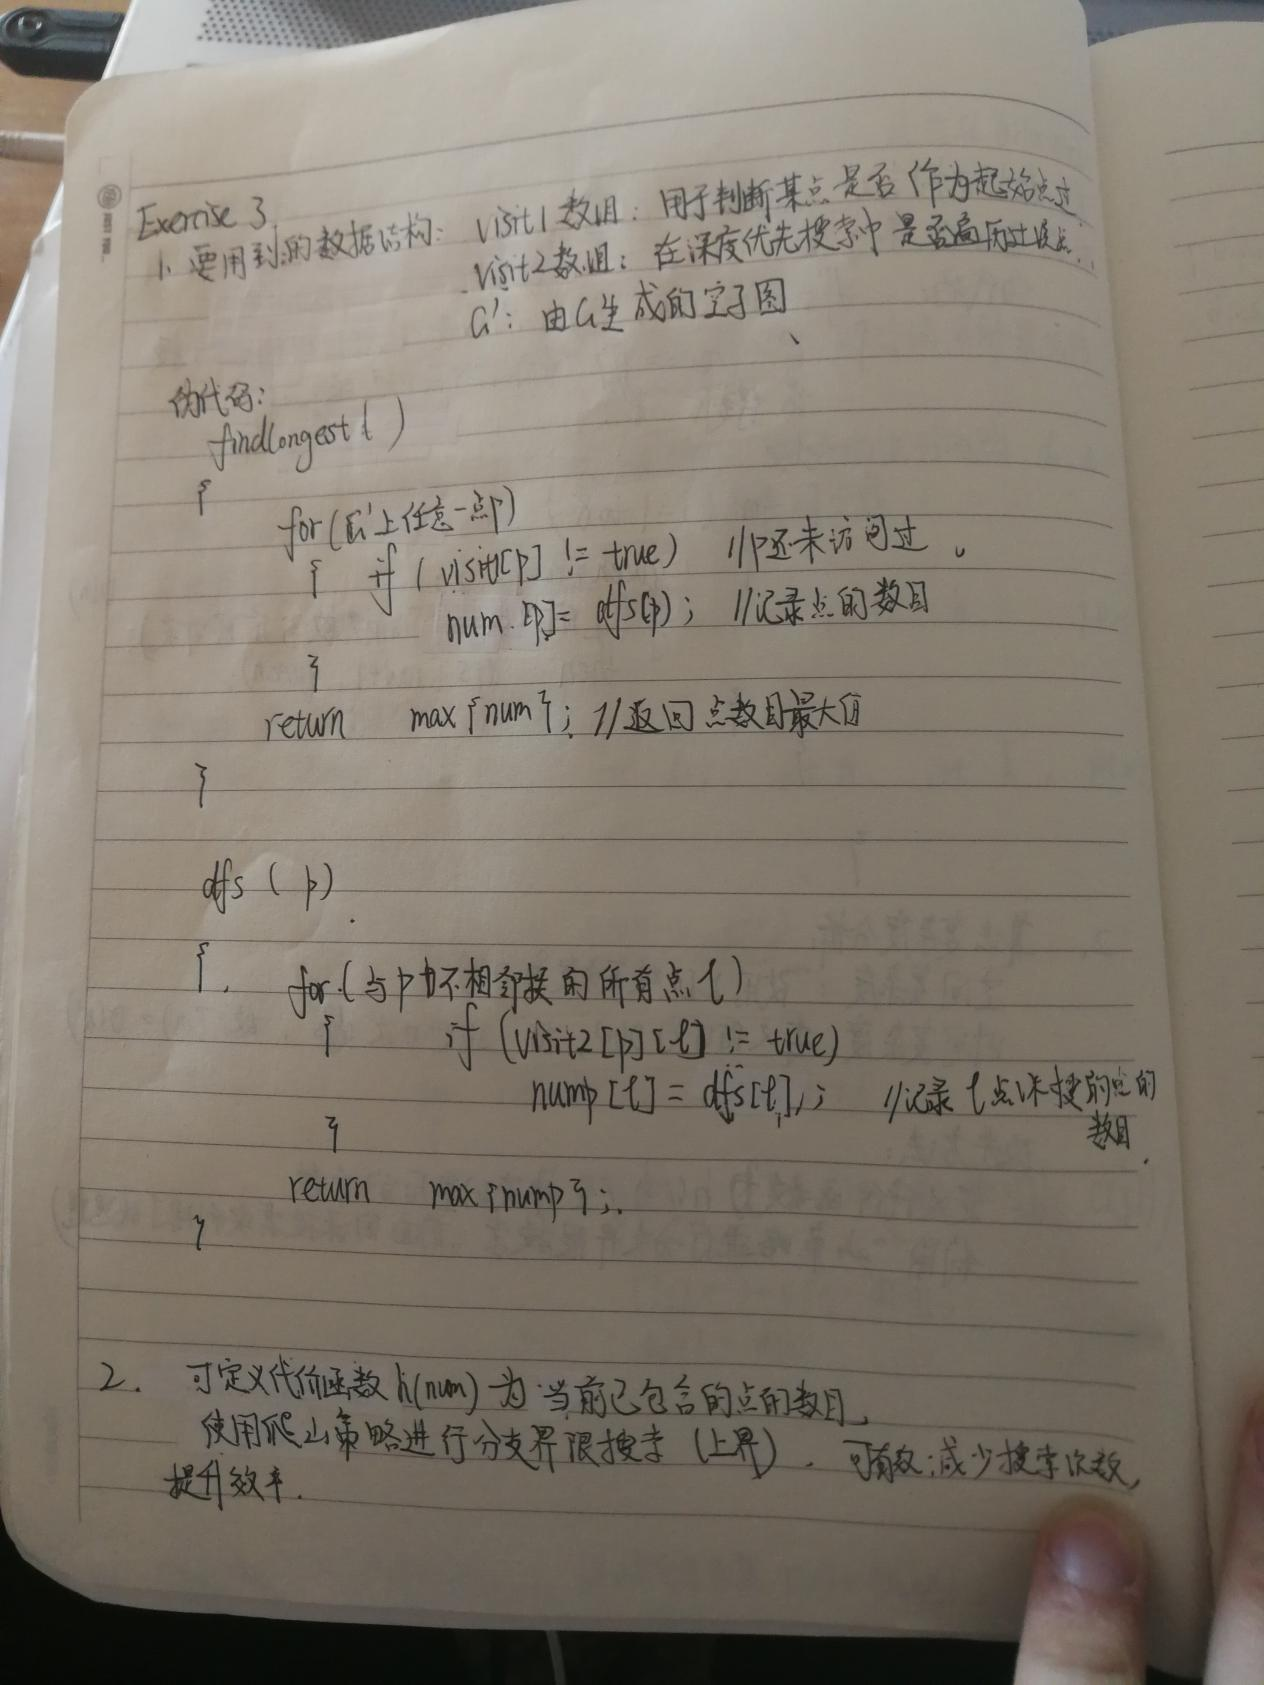 Exercise 3
1、要用到的数据结构: visit1数组: 用于判断某点是否作为起始点过
visit2数组: 在深度优先搜索中是否遍历过该点
G': 由G生成的空子图
伪代码:
findlongest( )
{
for(G'上任意一点p)
{ if (visit1[p] != true) //p还未访问过
num[p]= dfs(p); //记录点的数目
}
return max{num}; //返回点数目最大值
}
dfs ( p)
{
for(与p 不相邻接的所有点t)
{ if (visit2[p][t] != true)
nump[t] = dfs[t]; //记录t点 搜的点的
数目
}
return max{nump};
}
2. 可定义代价函数h(num)为当前已包含的点的数目,
使用爬山策略进行分支界限搜索(上界). 可有效减少搜索次数,
提升效率.